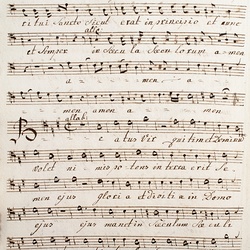 ritui Sancto Sicut erat in principio et nunc
et Semper in Secu la Saeculorum a men
a men a
men amen a men
allab:
Beatus Vir qui timet Dominum
volet ni mis potens in terra erit Se
men ejus gloria et divitiae in Domo
ejus ejus manet in Saeculum Saeculi